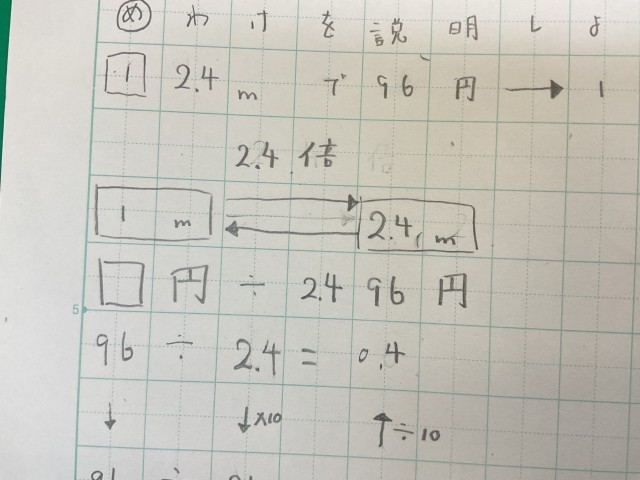 め わけを説明しよ
1 2.4mで96円→1
2.4倍
1m 2.4m
□円÷2.4 96円
5
96÷2.4=0.4
↓ ↓×10 ↑÷10